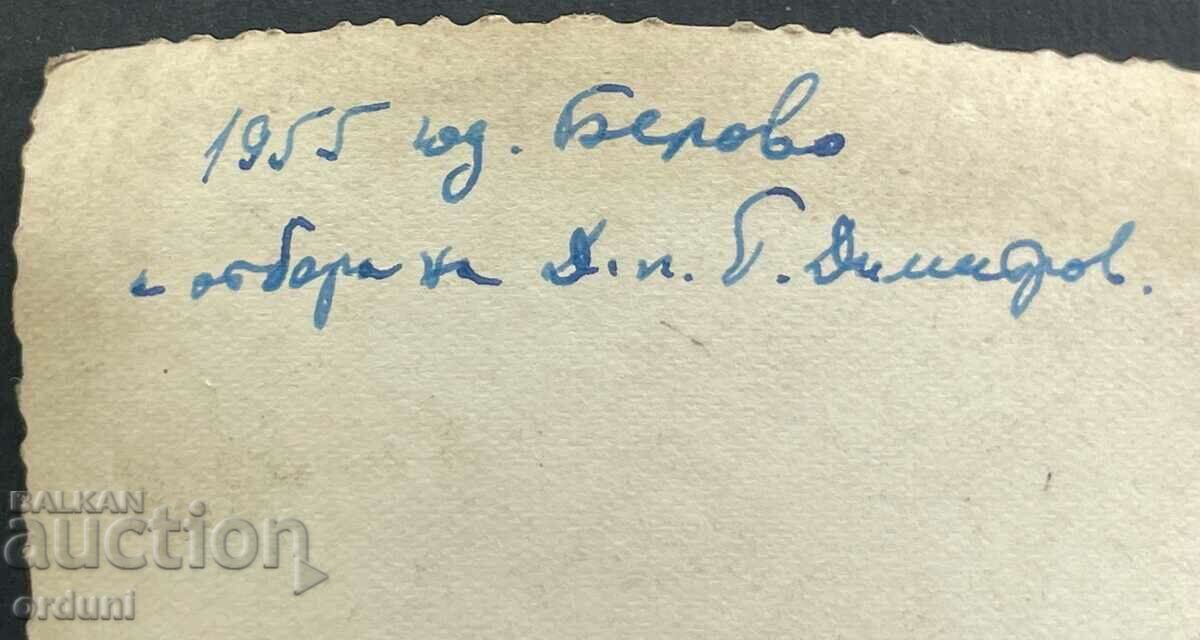 1955 год. Берово
с отбора на Д.п. Г. Димитров.
BALKAN
auction
orduni